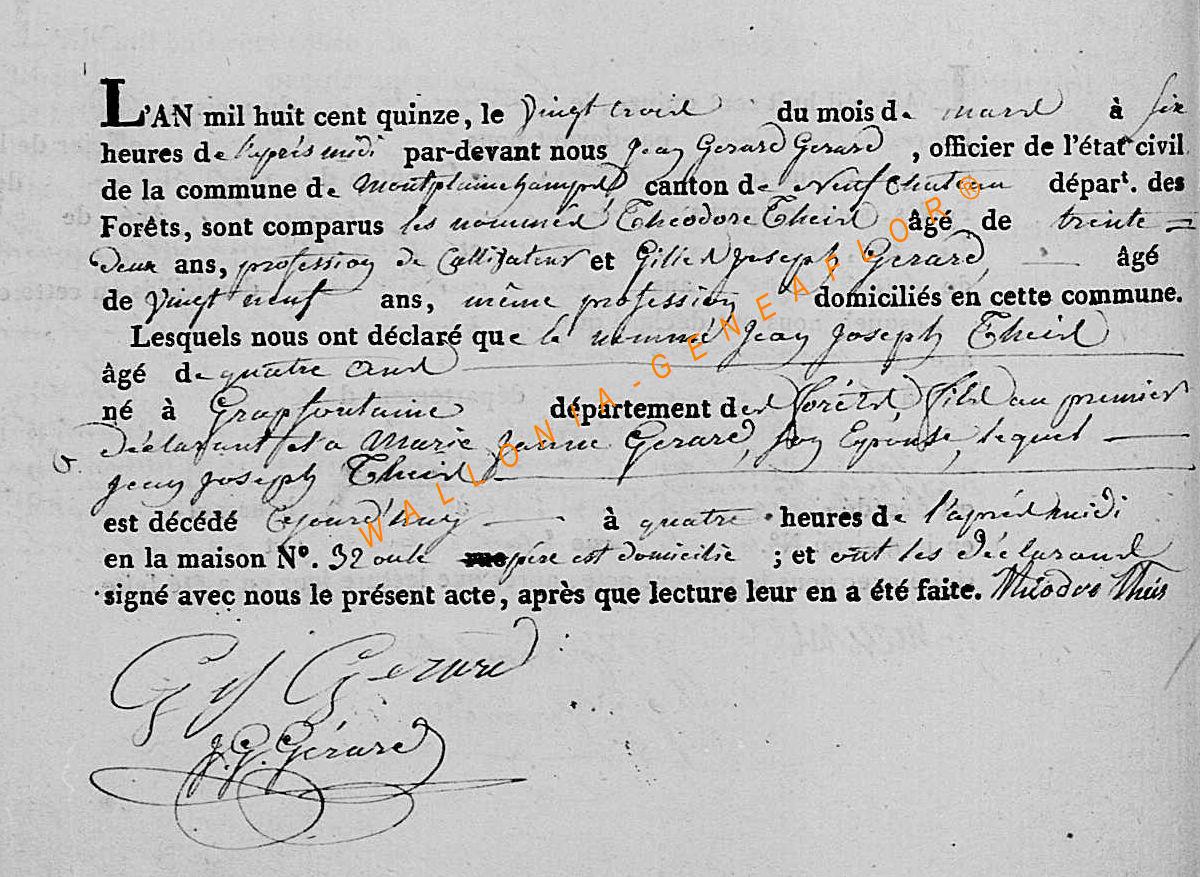 L'AN mil huit cent quinze, le Vingt trois du mois de mars à six
heures de l'après midi par-devant nous Jean Gerard Gerard, officier de l'état civil
de la commune de Montplainchamps canton de Neufchateau départ. des
Forêts, sont comparus les nommés Theodore Theis âgé de trente =
deux ans, profession de Cultivateur et Gilles Joseph Gerard, âgé
de Vingt neuf ans, même profession domiciliés en cette commune.
Lesquels nous ont déclaré que le nommé Jean Joseph Theis
âgé de quatre ans
né à Grapfontaine département des forêts, fils au premier
Déclarant et a Marie Jeanne Gerard, son Epouse, lequel
G.
Jean Joseph Theis
est décédé cejourd'huy à quatre heures de l'après midi
en la maison N°. 32 oule père est domicilié ; et ont les déclarans
signé avec nous le présent acte, après que lecture leur en a été faite. Théodore Theis
G J Gerard
J. G. Gérard
WALLONIA-GENEAFLOR®